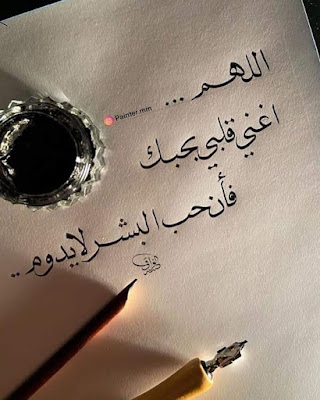 اللهم ...
Painter.mm
اغني قلبي بحبك
فأن حب البشر لا يدوم ..